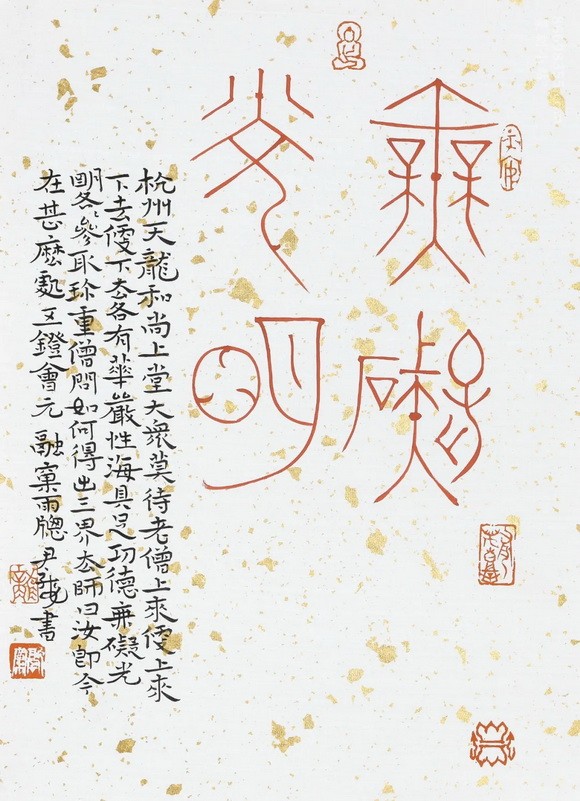 無礙
光明
杭州天龍和尚上堂大衆莫待老僧上來便上來
下去便下去各有華嚴性海具足功德無礙光
明各各參取珍重僧問如何得出三界去師曰汝即今
在甚麼處五鐙會元 融窠雨牕尹海書